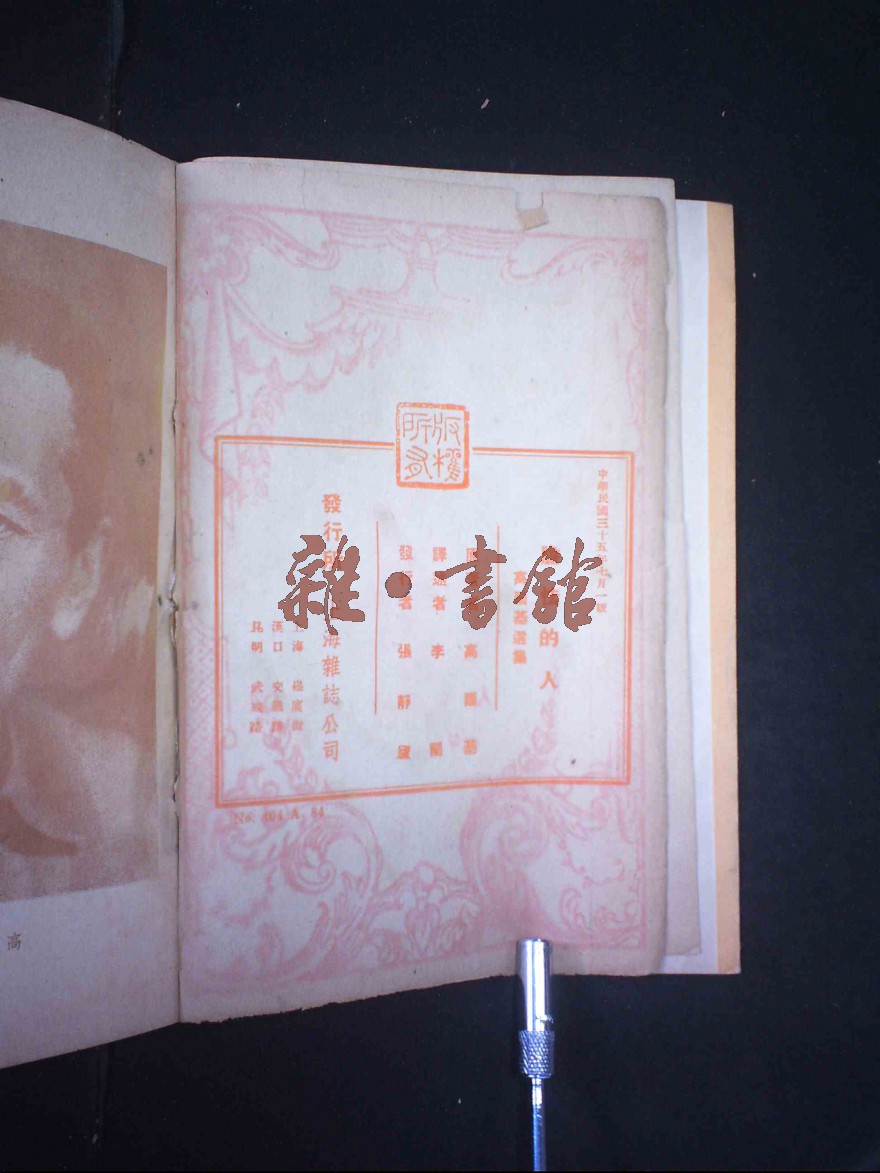 版權所有
中華民國三十五年七月一號
的人
高爾基選集
高爾基
譯述者 李蘭
發行者 張靜廬
發行所 海雜誌公司
上海
漢口 交通路
昆明 武成路
No. 404 A. 84
高
雜·書館